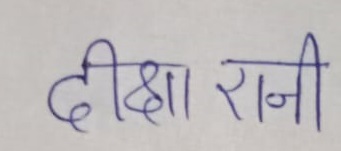 दीक्षा रानी